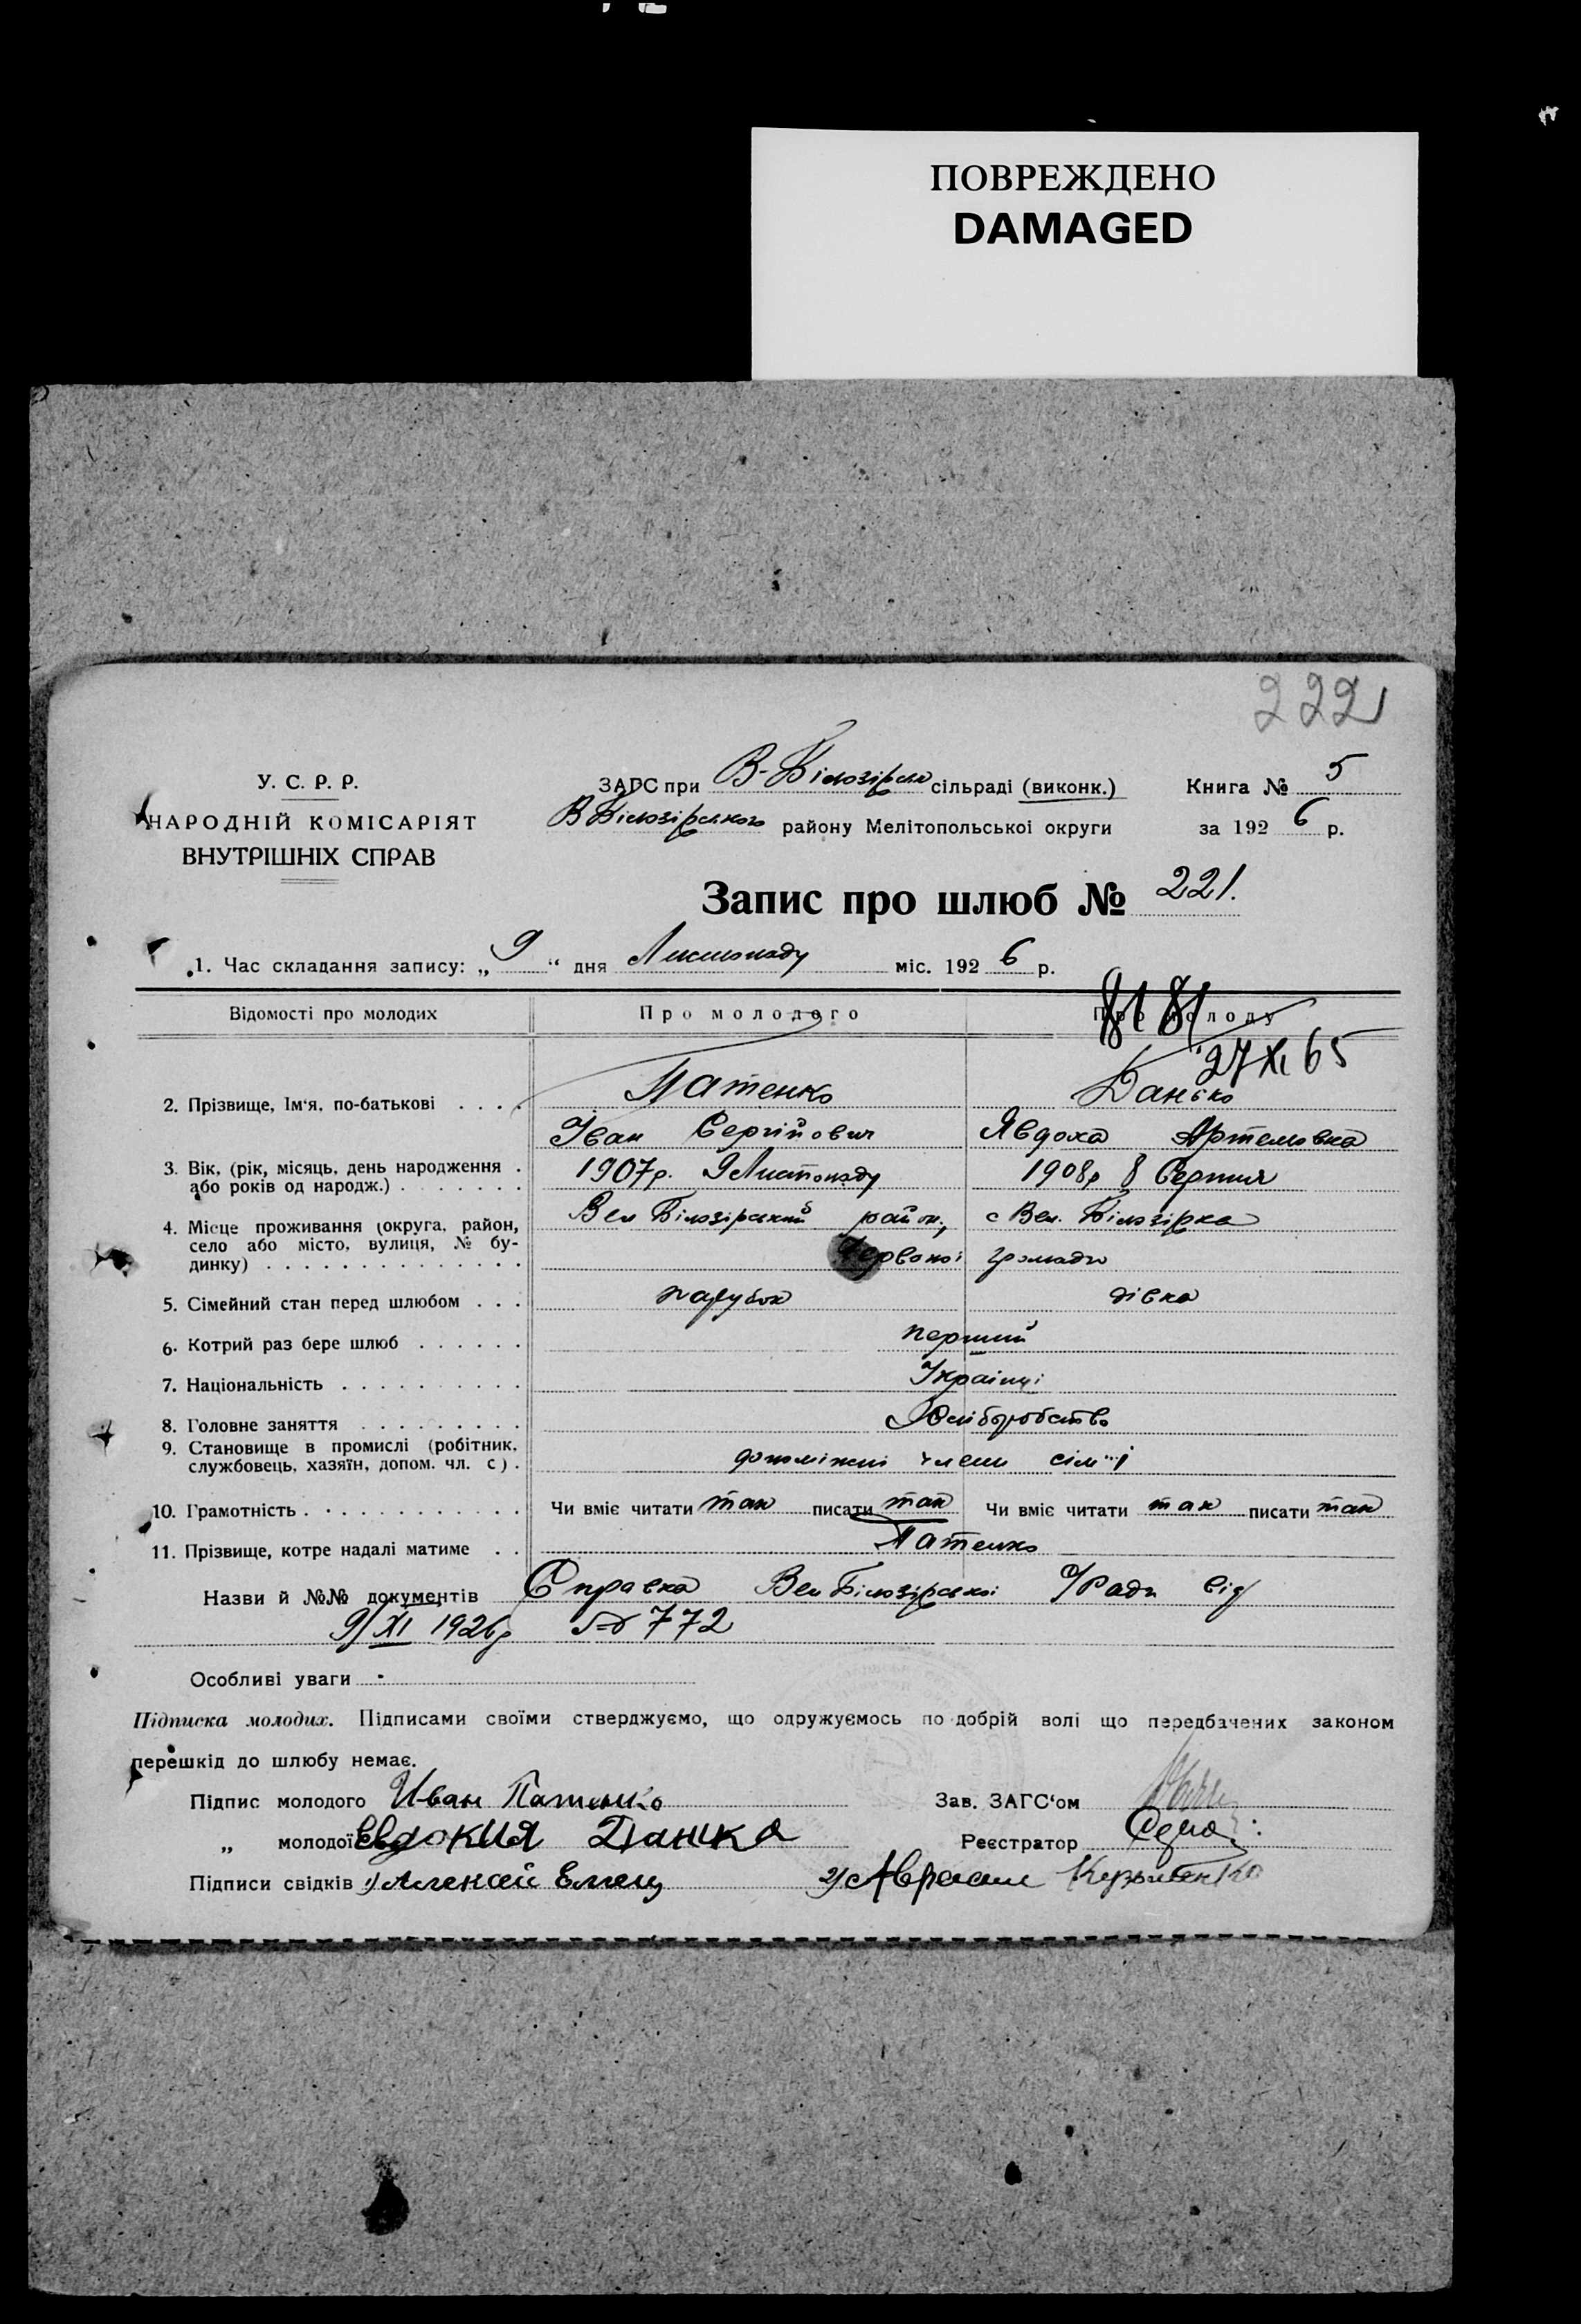 ПОВРЕЖДЕНО
DAMAGED
222
У. С. Р. Р.
НАРОДНІЙ КОМІСАРІЯТ
ВНУТРІШНІХ СПРАВ
ЗАГС при В-Білозірськ сільраді (виконк.)
В Білозірського району Мелітопольської округи
Книга № 5
за 1926 р.
Запис про шлюб № 221.
1. Час складання запису: „9“ дня Листопаду міс. 1926 р.
Відомості про молодих Про молодого Про молоду
8181
27 XI 65
2. Прізвище, Ім‘я, по-батькові . . . . Патенко Данько
Іван Сергійович Явдоха Артемовна
3. Вік, (рік, місяць, день народження . 1907р. 9 Листопаду 1908р 8 Серпня
або років од народж.) . . . . . . .
4. Місце проживання (округа, район, Вел Білозірський район, с Вел. Білозірка
село або місто, вулиця, № бу-
динку) . . . . . . . . . . . . . . Червоної громади
5. Сімейний стан перед шлюбом . . . парубок дівка
6. Котрий раз бере шлюб . . . . . . перший
7. Національність . . . . . . . . . . Українці
8. Головне заняття . . . . . . . . . Хліборобство
9. Становище в промислі (робітник,
службовець, хазяїн, допом. чл. с) . допоміжні члени сім'ї
10. Грамотність . . . . . . . . . . . . Чи вміє читати так писати так Чи вміє читати так писати так
11. Прізвище, котре надалі матиме . . Патенко
Назви й №№ документів Справка Вел Білозірської Ради від
9/XI 1926р № 772
Особливі уваги -
Підписка молодих. Підписами своїми стверджуємо, що одружуємось по добрій волі що передбачених законом
перешкід до шлюбу немає.
Підпис молодого Иван Патенко Зав. ЗАГС‘ом
„ молодої Евдокия Данка Реєстратор
Підписи свідків 1) Алексей Емец 2) Авраам Кузьменко